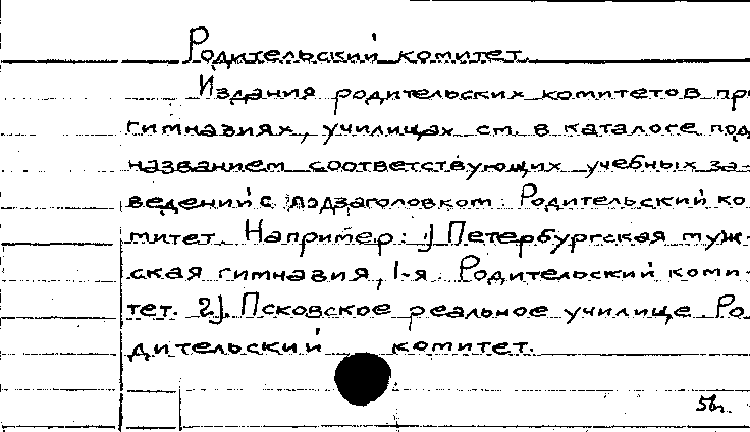 Родительский комитет.
Издания родительских комитетов при
гимназиях, училищах см. в каталоге под
названием соответствующих учебных за-
ведений с подзаголовком: Родительский ко-
митет. Например: 1) Петербургская муж-
ская гимназия, 1-я. Родительский коми-
тет. 2). Псковское реальное училище. Ро-
дительский комитет.